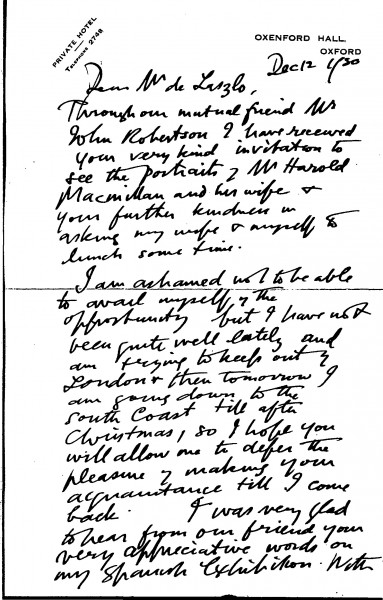 PRIVATE HOTEL
TELEPHONE 2748
OXENFORD HALL.
OXFORD
Dec 12 1930
Dear Mr de Laszlo,
Through our mutual friend Mr
John Robertson I have received
your very kind invitation to
see the portraits of Mr Harold
Macmillan and his wife &
your further kindness in
asking my wife & myself to
lunch some time.
I am ashamed not to be able
to avail myself of the
opportunity but I have not
been quite well lately and
am trying to keep out of
London & then tomorrow I
am going down to the
South Coast till after
Christmas, so I hope you
will allow me to defer the
pleasure of making your
acquaintance till I come
back. I was very glad
to hear from our friend your
very appreciative words on
my Spanish Exhibition. With